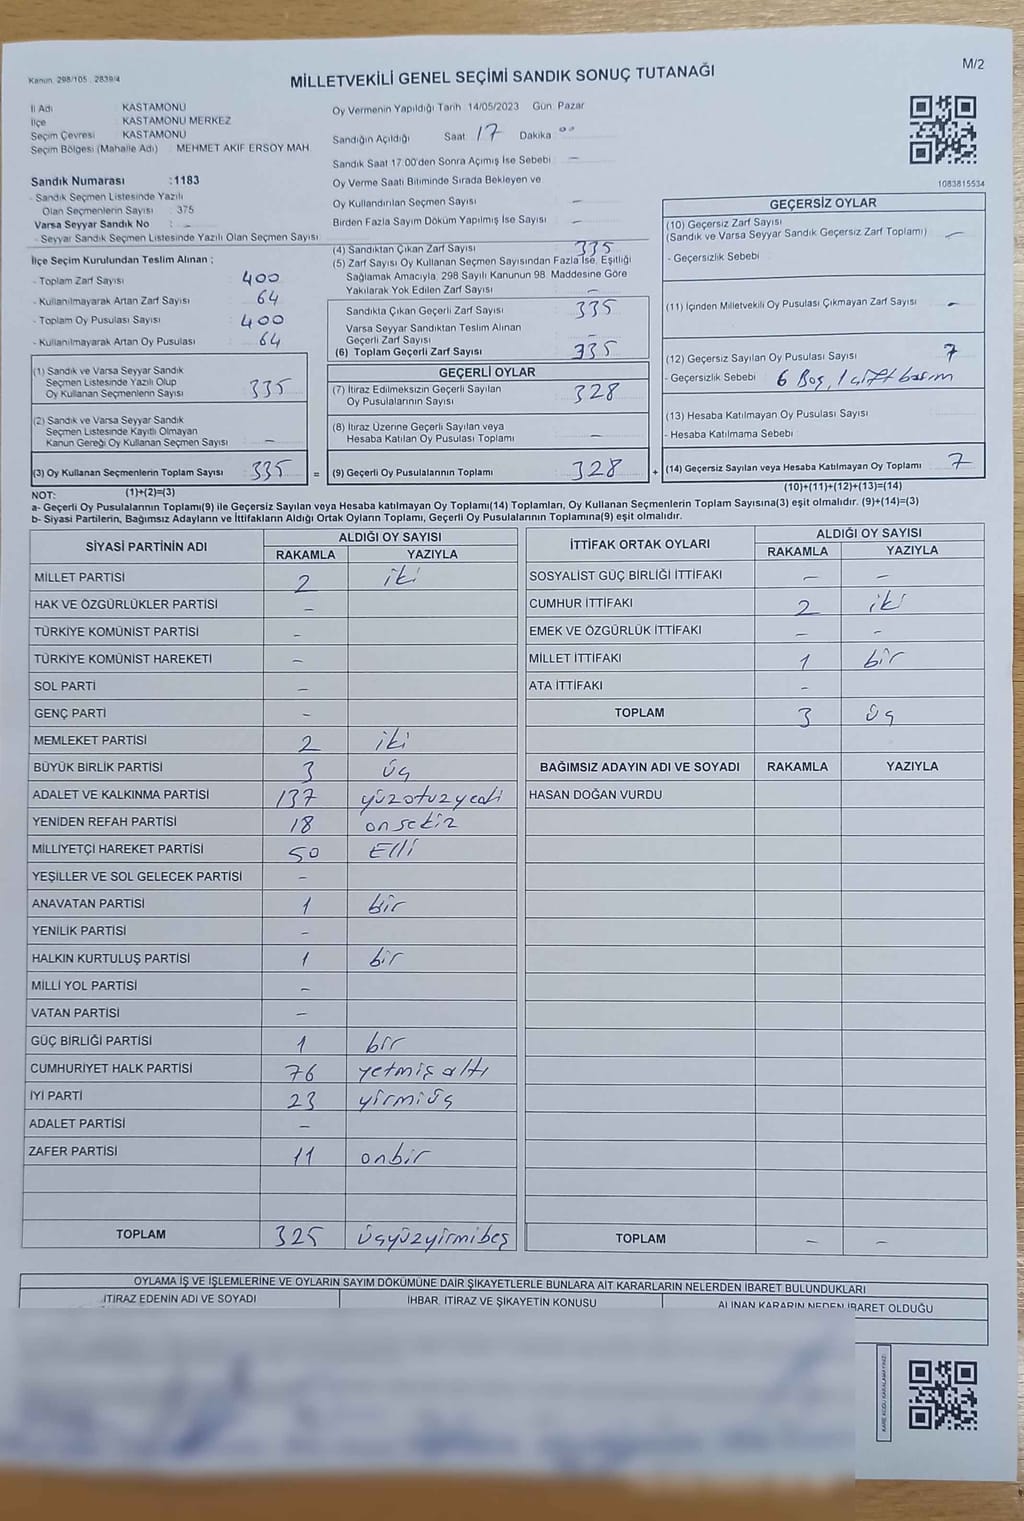 Kanun. 298/105 . 2839/4
MİLLETVEKİLİ GENEL SEÇİMİ SANDIK SONUÇ TUTANAĞI
M/2
İl Adı KASTAMONU
İlçe KASTAMONU MERKEZ
Seçim Çevresi KASTAMONU
Seçim Bölgesi (Mahalle Adı) MEHMET AKİF ERSOY MAH.
Oy Vermenin Yapıldığı Tarih 14/05/2023 Gün. Pazar
Sandığın Açıldığı Saat 17 Dakika 00
Sandık Saat 17:00'den Sonra Açımış İse Sebebi –
Oy Verme Saati Bitiminde Sırada Bekleyen ve
Oy Kullandırılan Seçmen Sayısı –
Birden Fazla Sayım Döküm Yapılmış İse Sayısı –
Sandık Numarası :1183
- Sandık Seçmen Listesinde Yazılı
Olan Seçmenlerin Sayısı : 375
Varsa Seyyar Sandık No : –
- Seyyar Sandık Seçmen Listesinde Yazılı Olan Seçmen Sayısı
İlçe Seçim Kurulundan Teslim Alınan ;
- Toplam Zarf Sayısı 400
- Kullanılmayarak Artan Zarf Sayısı 64
- Toplam Oy Pusulası Sayısı 400
- Kullanılmayarak Artan Oy Pusulası 64
(1) Sandık ve Varsa Seyyar Sandık
Seçmen Listesinde Yazılı Olup
Oy Kullanan Seçmenlerin Sayısı 335
(2) Sandık ve Varsa Seyyar Sandık
Seçmen Listesinde Kayıtlı Olmayan
Kanun Gereği Oy Kullanan Seçmen Sayısı –
(3) Oy Kullanan Seçmenlerin Toplam Sayısı 335 =
(4) Sandıktan Çıkan Zarf Sayısı 335
(5) Zarf Sayısı Oy Kullanan Seçmen Sayısından Fazla İse, Eşitliği
Sağlamak Amacıyla, 298 Sayılı Kanunun 98. Maddesine Göre
Yakılarak Yok Edilen Zarf Sayısı –
Sandıkta Çıkan Geçerli Zarf Sayısı 335
Varsa Seyyar Sandıktan Teslim Alınan
Geçerli Zarf Sayısı –
(6) Toplam Geçerli Zarf Sayısı 335
GEÇERLİ OYLAR
(7) İtiraz Edilmeksizin Geçerli Sayılan
Oy Pusulalarının Sayısı 328
(8) İtiraz Üzerine Geçerli Sayılan veya
Hesaba Katılan Oy Pusulası Toplamı –
(9) Geçerli Oy Pusulalarının Toplamı 328 +
1083815534
GEÇERSİZ OYLAR
(10) Geçersiz Zarf Sayısı
(Sandık ve Varsa Seyyar Sandık Geçersiz Zarf Toplamı) –
- Geçersizlik Sebebi
(11) İçinden Milletvekili Oy Pusulası Çıkmayan Zarf Sayısı –
(12) Geçersiz Sayılan Oy Pusulası Sayısı 7
- Geçersizlik Sebebi 6 Boş, 1 çift basım
(13) Hesaba Katılmayan Oy Pusulası Sayısı
- Hesaba Katılmama Sebebi
(14) Geçersiz Sayılan veya Hesaba Katılmayan Oy Toplamı 7
NOT: (1)+(2)=(3) (10)+(11)+(12)+(13)=(14)
a- Geçerli Oy Pusulalarının Toplamı(9) ile Geçersiz Sayılan veya Hesaba katılmayan Oy Toplamı(14) Toplamları, Oy Kullanan Seçmenlerin Toplam Sayısına(3) eşit olmalıdır. (9)+(14)=(3)
b- Siyasi Partilerin, Bağımsız Adayların ve İttifakların Aldığı Ortak Oyların Toplamı, Geçerli Oy Pusulalarının Toplamına(9) eşit olmalıdır.
SİYASİ PARTİNİN ADI ALDIĞI OY SAYISI
RAKAMLA YAZIYLA
MİLLET PARTİSİ 2 iki
HAK VE ÖZGÜRLÜKLER PARTİSİ –
TÜRKİYE KOMÜNİST PARTİSİ –
TÜRKİYE KOMÜNİST HAREKETİ –
SOL PARTİ –
GENÇ PARTİ –
MEMLEKET PARTİSİ 2 iki
BÜYÜK BİRLİK PARTİSİ 3 üç
ADALET VE KALKINMA PARTİSİ 137 yüzotuzyedi
YENİDEN REFAH PARTİSİ 18 onsekiz
MİLLİYETÇİ HAREKET PARTİSİ 50 Elli
YEŞİLLER VE SOL GELECEK PARTİSİ –
ANAVATAN PARTİSİ 1 bir
YENİLİK PARTİSİ –
HALKIN KURTULUŞ PARTİSİ 1 bir
MİLLİ YOL PARTİSİ –
VATAN PARTİSİ –
GÜÇ BİRLİĞİ PARTİSİ 1 bir
CUMHURİYET HALK PARTİSİ 76 yetmiş altı
İYİ PARTİ 23 yirmiüç
ADALET PARTİSİ –
ZAFER PARTİSİ 11 onbir
TOPLAM 325 üçyüzyirmibeş
İTTİFAK ORTAK OYLARI ALDIĞI OY SAYISI
RAKAMLA YAZIYLA
SOSYALİST GÜÇ BİRLİĞİ İTTİFAKI – –
CUMHUR İTTİFAKI 2 iki
EMEK VE ÖZGÜRLÜK İTTİFAKI – –
MİLLET İTTİFAKI 1 bir
ATA İTTİFAKI –
TOPLAM 3 üç
BAĞIMSIZ ADAYIN ADI VE SOYADI RAKAMLA YAZIYLA
HASAN DOĞAN VURDU
TOPLAM – –
OYLAMA İŞ VE İŞLEMLERİNE VE OYLARIN SAYIM DÖKÜMÜNE DAİR ŞİKAYETLERLE BUNLARA AİT KARARLARIN NELERDEN İBARET BULUNDUKLARI
İTİRAZ EDENİN ADI VE SOYADI İHBAR, İTİRAZ VE ŞİKAYETİN KONUSU ALINAN KARARIN NEDEN İBARET OLDUĞU
KARE KODU KARALAMAYINIZ!